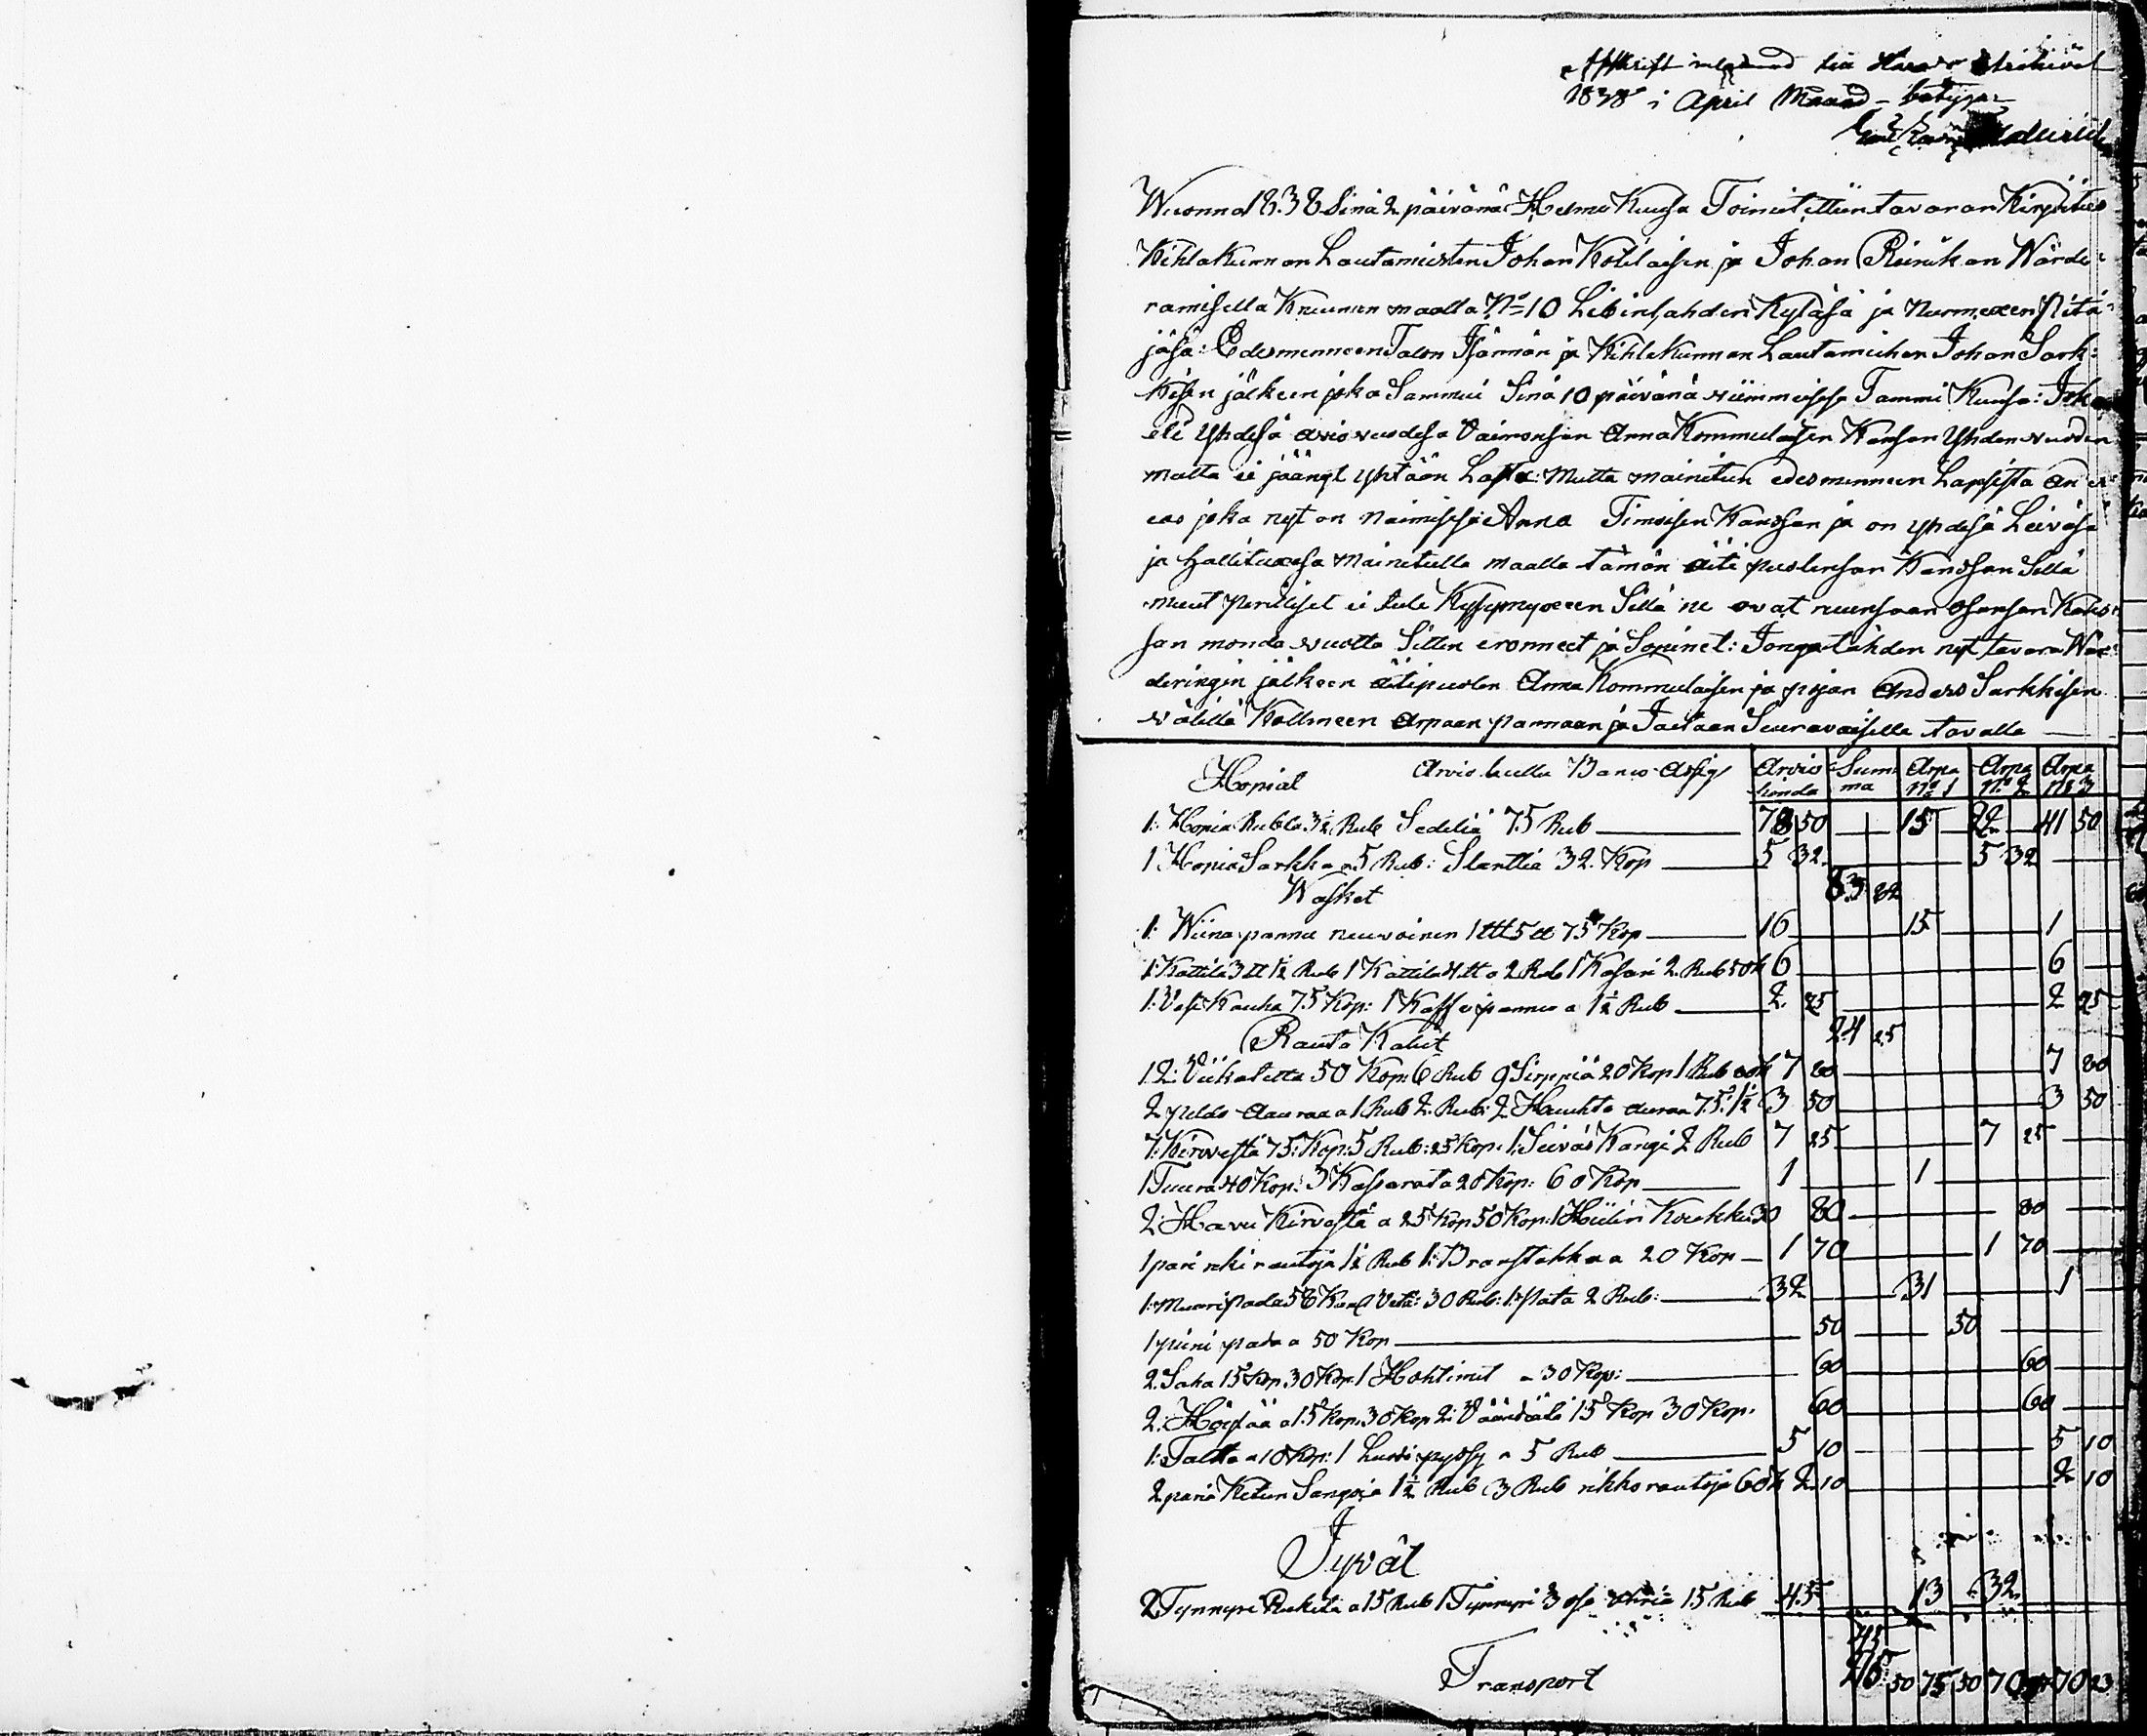 Afskrift inlemnad till Härads Archivet
1838 i April Månad - betygar
Wuonna 1838 Sinä 2 päivänä Helmi Kuusa Toimitettiin tavaran Kirjoitus
Kihlakunnan Lautamiesten Johan Kotilaisen ja Johan Riinikan Wärde:
ramisella Kruunun maalla No 10 Libinlahden Kyläsä ja Nurmexen Pitä:
jäsä: Edesmenneen Talon Isännän ja Kihlakunnan Lautamiehen Johan Sark:
kisen jälkeen joka Sammui Sinä 10 päivänä viimmeisesä Tammi Kuusa: Joka
eli Yhdesä aviovuodesa Vaimonsan Anna Kommulaisen Kansan Yhden vuoden
mutta ei jäänyt yhtään Lasta: Mutta mainitun edesmenneen Lapsista And
eas joka nyt on naimisesa Anna Timoisen Kanssan ja on yhdesä Leiväsä
ja hallituxesa Mainitulla maalla tämän äiti puolensan Kanssan Sillä
muut Perilliset ei tule Kysymyxeen Sillä ne ovat ruunsaan osansan Kans
san monda vuotta Sitten eronneet ja Sopinet: Jonga tähden nyt tavara Wär:
deringin jälkeen äitipuolen Anna Kommulaisen ja pojan Anders Sarkkisen
välillä Kolmeen Arpaan pannaan ja Jaetaan Seuravaisella tavalla
Hopiat Arvio luullu Banco Assig Arvio hinda Summa Arpa No 1 Arpa No 2 Arpa No 3
1: Hopia Rubla 3½ Rub Sedeliä 75 Rub 78 50 15 22 41 50
1 Hopia Sarkka a 5 Rub: Slanttia 32 Kop 5 32 5 32
Wasket 83 82
1: Wiina pannu neuvoinen 1 ltt 5 tt 75 Kop 16 15 1
1: Kattila 3 tt 1½ Rub 1 Kattila 4 tt a 2 Rub 1 Kasari 2 Rub 50 k 6 6
1: Vesi Kauha 75 Kop: 1 Kaffe pannu a 1½ Rub 2 25 2 25
Rauta Kalut 24 25
12: Viikatetta 50 Kop: 6 Rub 9 Sirppiä 20 Kop 1 Rub 80 k 7 80 7 80
2 peldo Auraa a 1 Rub 2 Rub: 2 Hauhto auraa 75: 1½ 3 50 3 50
7: Kirvestä 75: Kop: 5 Rub: 25 Kop: 1: Seiväs Kangi 2 Rub 7 25 7 25
1 Tuura 40 Kop: 3 Kassarata 20 Kop: 60 Kop 1 1
2: Havu Kirvestä a 25 Kop 50 Kop: 1 Hiilin Koukku 30 80 80
1 pari reki rautoja 1½ Rub 1: Branstakka a 20 Kop 1 70 1 70
1: Muuripada 30 Rub: 1: Pata 2 Rub: 32 31 1
1 pieni pada a 50 Kop 50 50
2. Saha 15 Kop 30 Kop: 1 Hohtimet a 30 Kop: 60 60
2: Höylää a 15 Kop: 30 Kop 2: Vääntiätä 15 Kop 30 Kop. 60 60
1: Taltta a 10 Kop: 1 Luodi pyssy a 5 Rub 5 10 5 10
2 pariä Ketun Sangoja 1½ Rub 3 Rub rikko rautoja 60 k 2 10 2 10
Jyvät
2 Tynnyri Rukita a 15 Rub 1 Tynnyri 3 osa 15 Rub 45 13 32
45
Transport 50 75 50 70 70 23